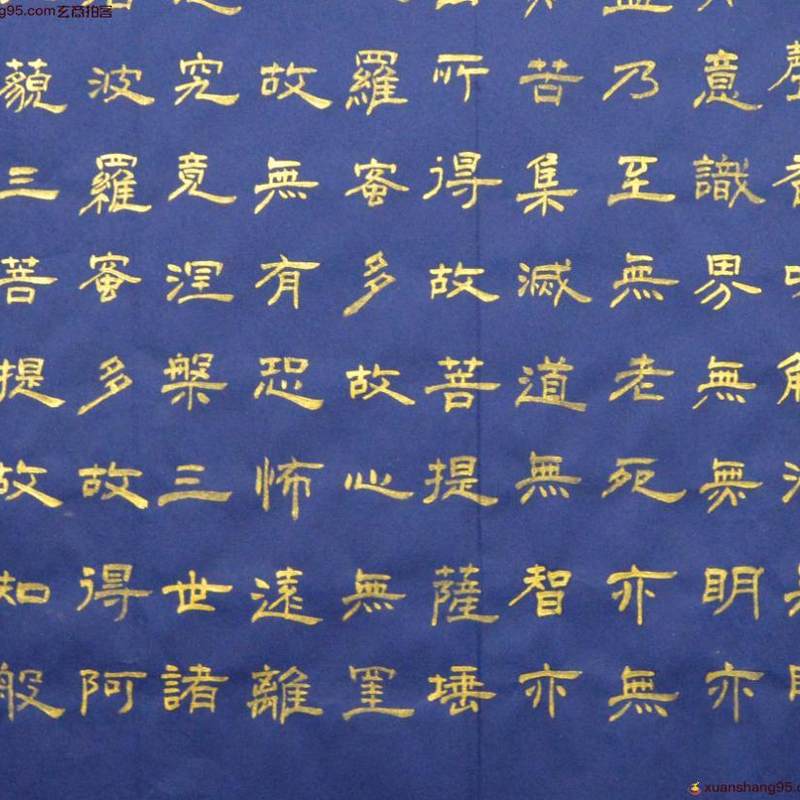 意識界無無明亦
乃至無老死亦無
苦集滅道無智亦
所得故菩提薩埵
羅蜜多故心無罣
故無有恐怖遠離
究竟涅槃三世諸
波羅蜜多故得阿
藐三菩提故知般
g95.com玄商拍客
xuanshang95.c